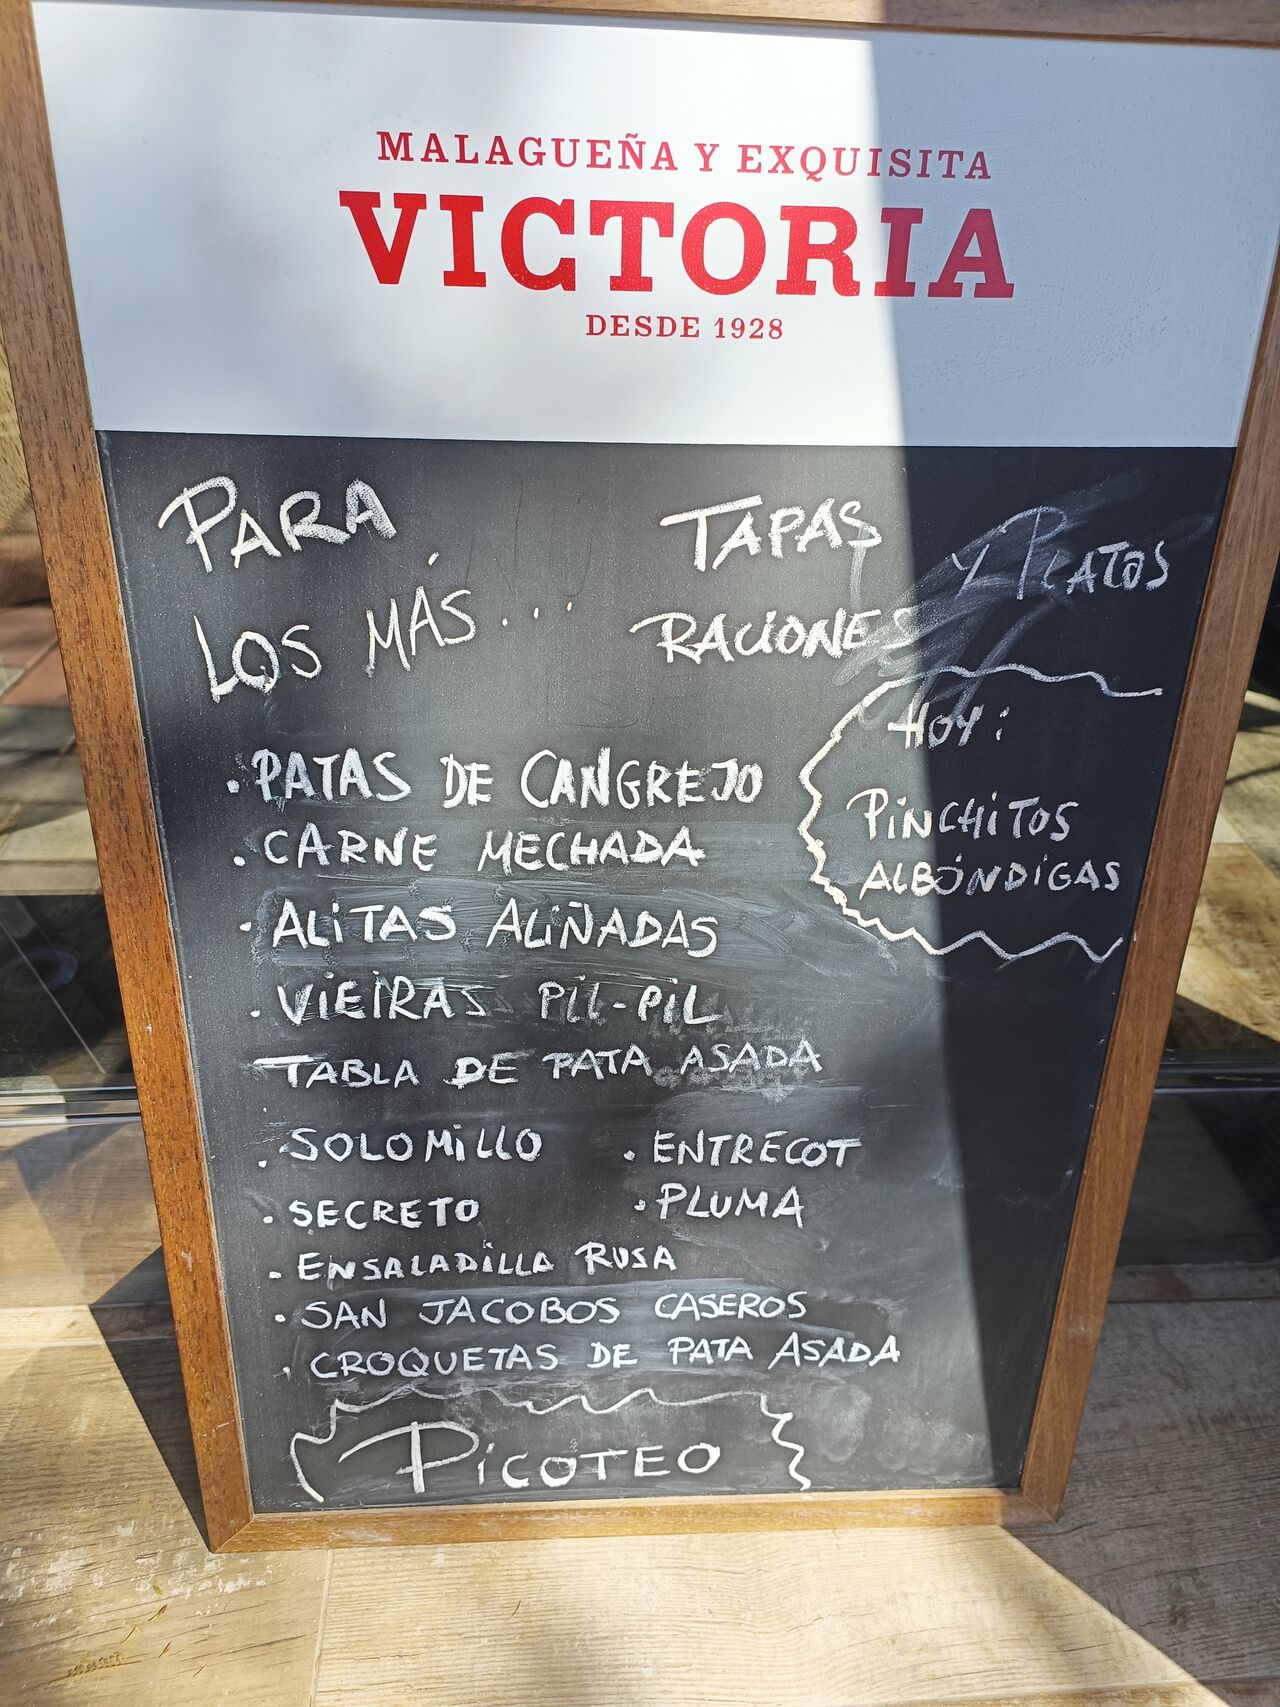 MALAGUEÑA Y EXQUISITA
VICTORIA
DESDE 1928
PARA
LOS MÁS...
TAPAS
Y PLATOS
RACIONES
HOY:
PINCHITOS
ALBÓNDIGAS
· PATAS DE CANGREJO
· CARNE MECHADA
· ALITAS ALIÑADAS
· VIEIRAS PIL-PIL
TABLA DE PATA ASADA
· SOLOMILLO · ENTRECOT
· SECRETO · PLUMA
· ENSALADILLA RUSA
· SAN JACOBOS CASEROS
· CROQUETAS DE PATA ASADA
PICOTEO